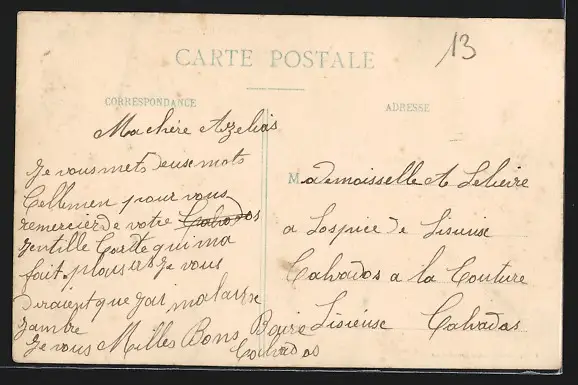 CARTE POSTALE
13
CORRESPONDANCE
ADRESSE
Ma chère Azelias
Je vous mets deuse mots
Cellemen pour vous
remercier de votre Calvados
Jentille Carte qui ma
fait plaisir Je vous
diraient que jai mal
Jambre
Je vous Milles Bons Baire
Calvados
Mademoisselle A Lelieire
a Lospice De Lisieuse
Calvados a la Couture
Lisieuse Calvados